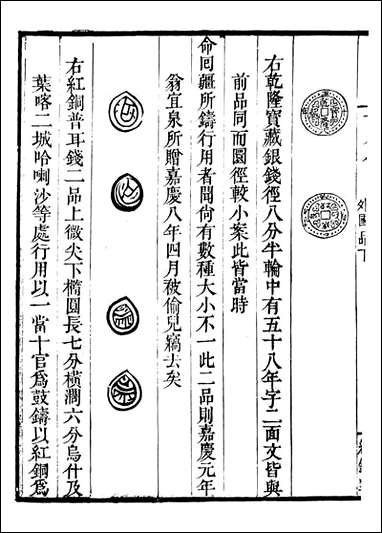 外國品下
右乾隆寶藏銀錢徑八分半輪中有五十八年字二面文皆與
前品同而圜徑較小案此皆當時
命回疆所鑄行用者聞尚有數種大小不一此二品則嘉慶元年
翁宜泉所贈嘉慶八年四月被偷兒竊去矣
右紅銅普耳錢二品上微尖下橢圓長七分橫濶六分烏什及
葉喀二城哈喇沙等處行用以一當十官爲鼓鑄以紅銅爲